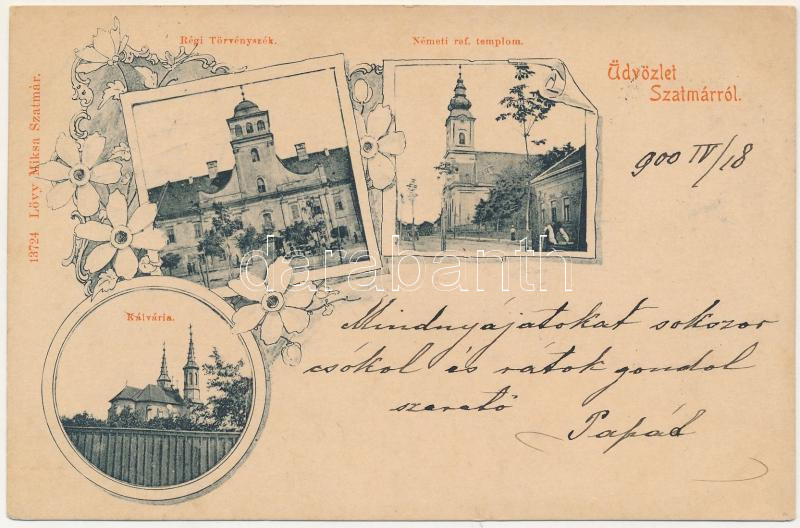 Régi Törvényszék.
Németi ref. templom.
Üdvözlet
Szatmárról.
900 IV/18
13724 Lövy Miksa Szatmár.
darabanth
Kálvária.
Mindnyájatokat sokszor
csókol és rátok gondol
szerető
Papád